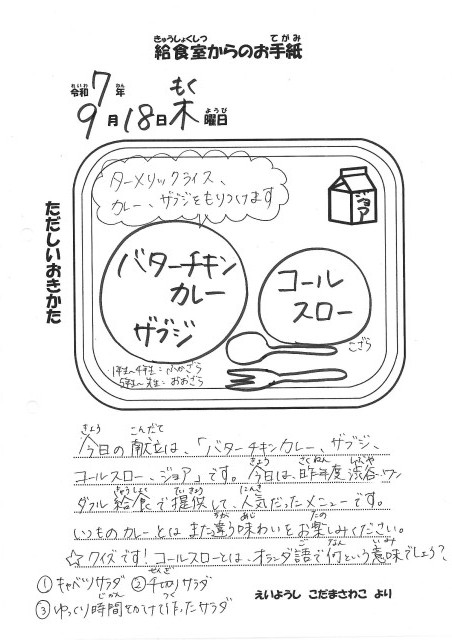 きゅうしょくしつ てがみ
給食室からのお手紙
れいわ ねん もく
令和7年
9月18日木曜日
ようび
ターメリックライス、
カレー、ザブジをもりつけます
ジョア
ただしいおきかた
バターチキン
カレー
ザブジ
コール
スロー
こざら
1年生~4年生:ふかざら
5年生~先生:おおざら
きょう こんだて
今日の献立は、「バターチキンカレー、ザブジ、
きょう さくねんど しぶや
コールスロー、ジョア」です。今日は、昨年度渋谷ワン
きゅうしょく ていきょう にんき
ダフル給食で提供して、人気だったメニューです。
ちが あじ たの
いつものカレーとはまた違う味わいをお楽しみください。
ご なん いみ
☆クイズです!コールスローとは、オランダ語で何という意味でしょう?
せんぎ
①キャベツサラダ ②千切りサラダ
じかん つく
③ゆっくり時間をかけて作ったサラダ
えいようし こだまさわこ より